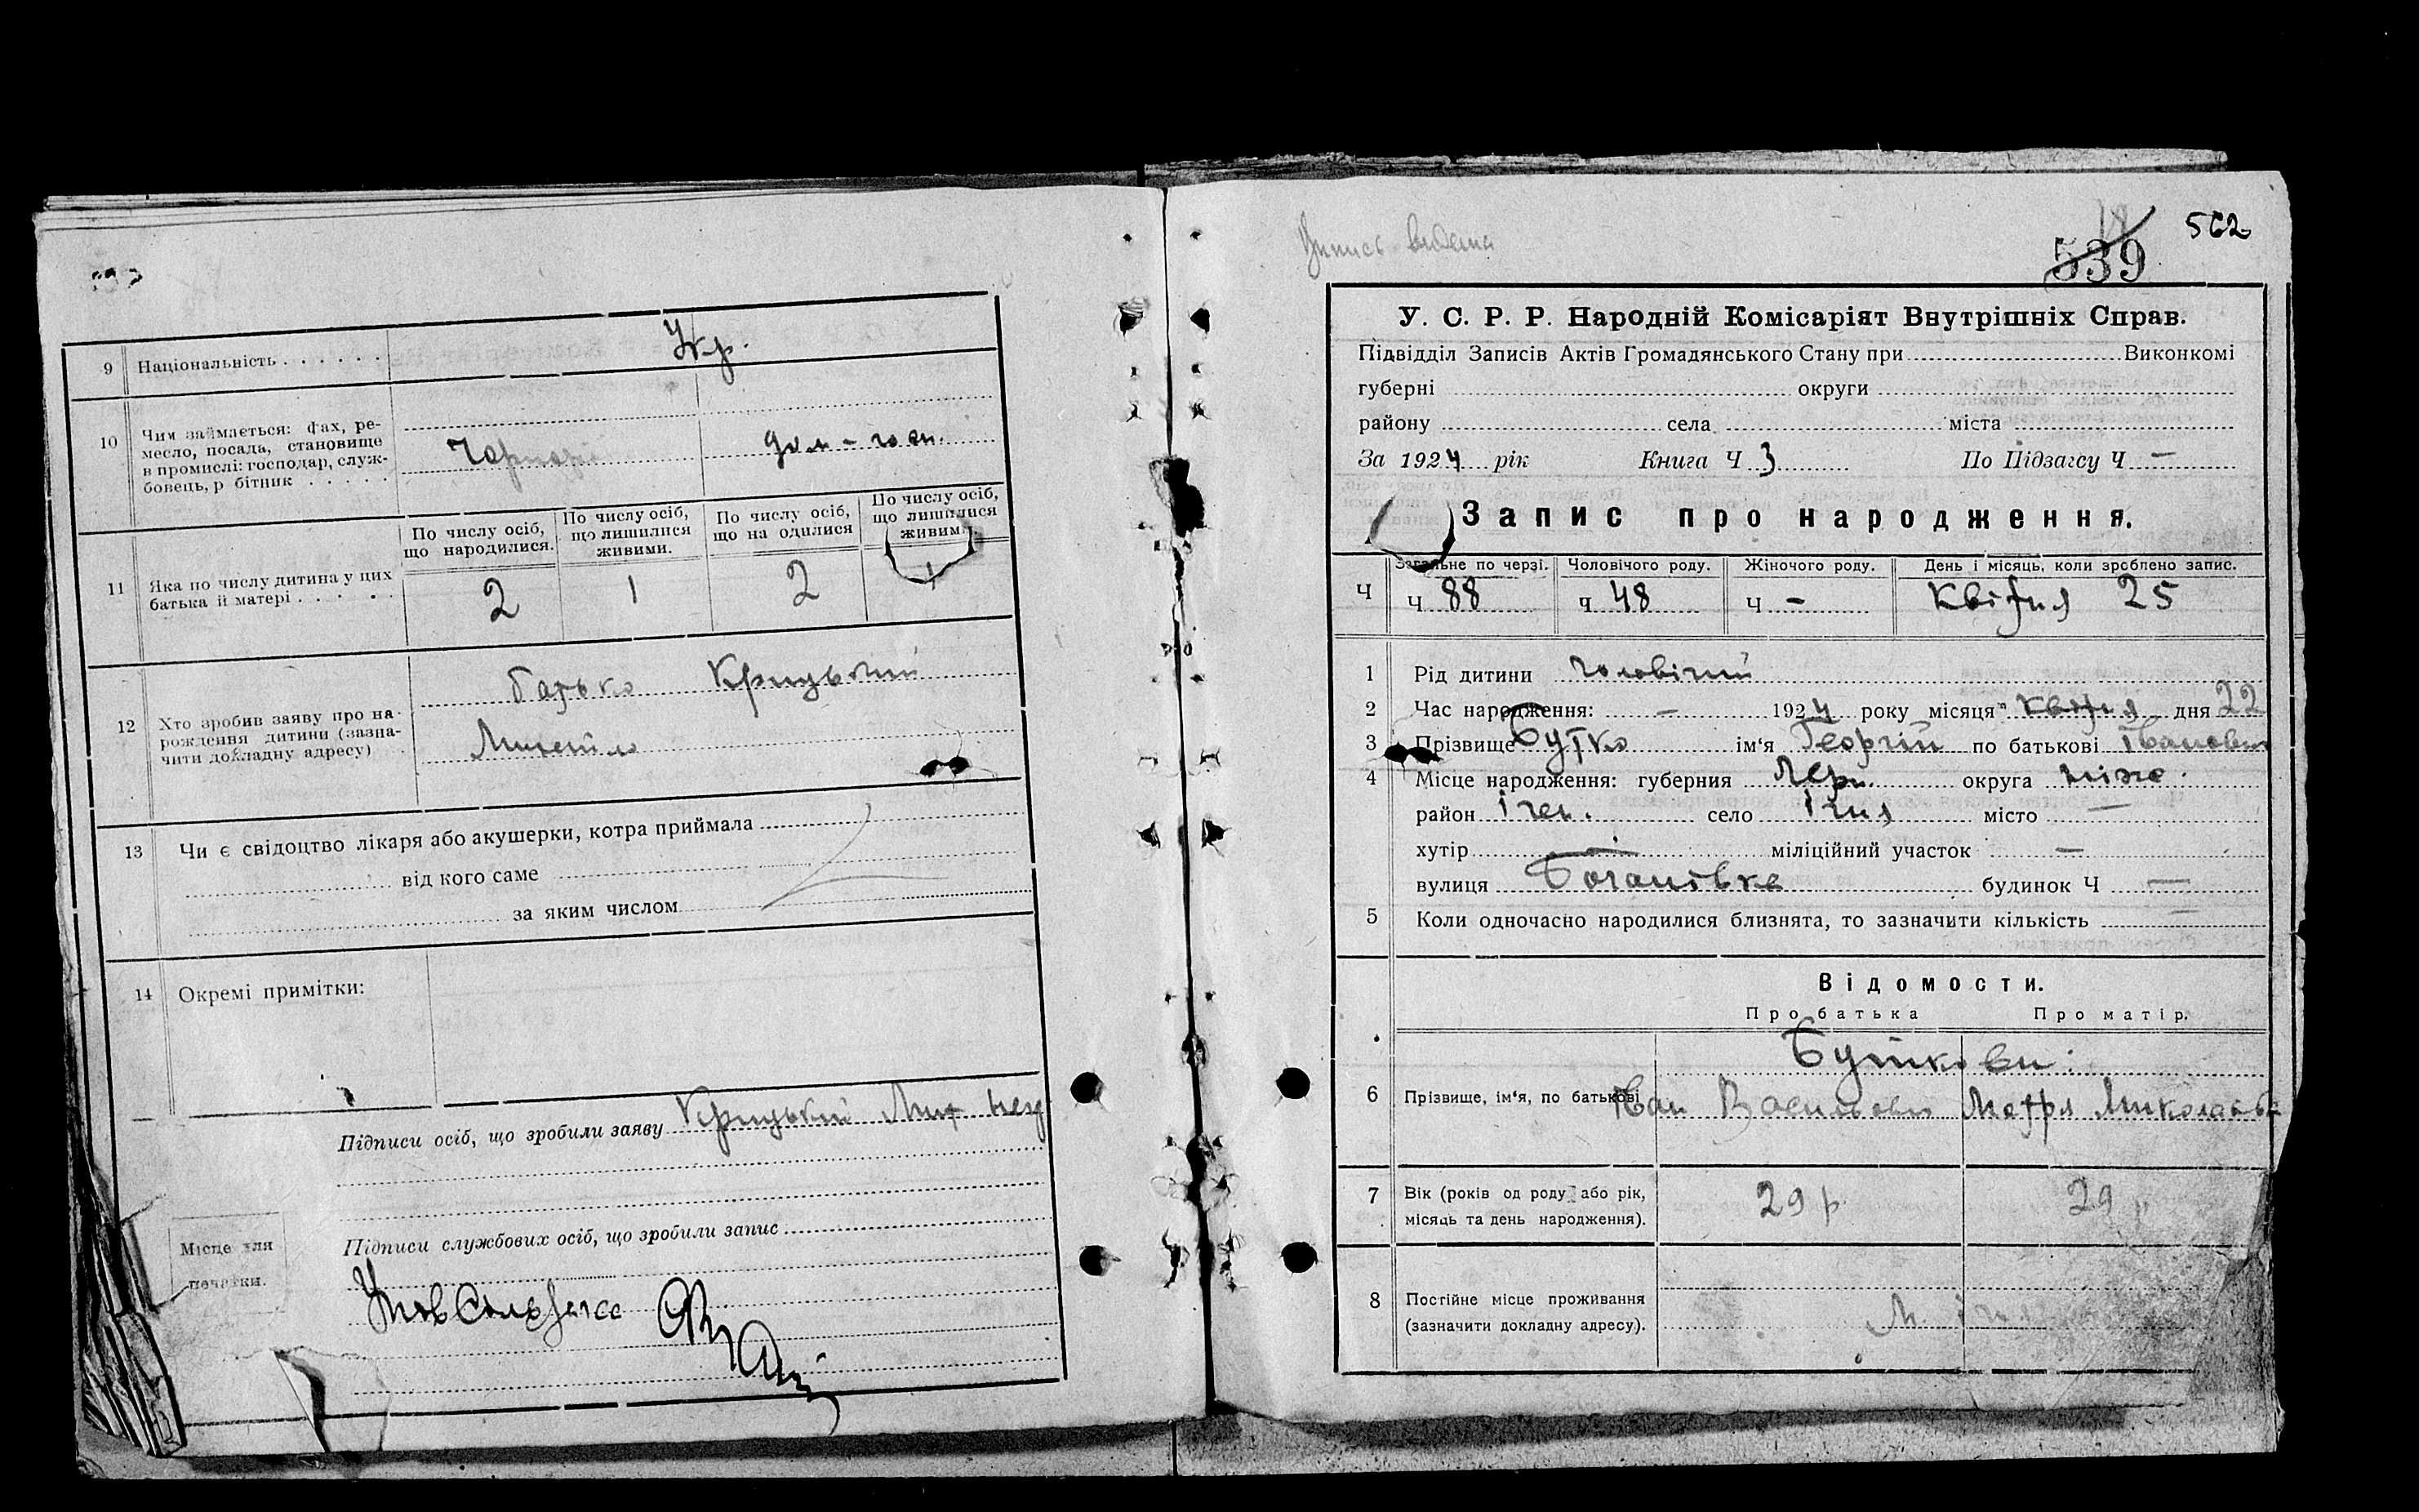 9 Національність . . . . . . Укр.
10 Чим займається: фах, ре-
месло, посада, становище
в промислі: господар, служ-
бовець, р бітник . . . . .
дом-госп.
11 Яка по числу дитина у цих
батька й матері . . . . .
По числу осіб, що народилися. 2
По числу осіб, що лишилися живими. 1
По числу осіб, що на одилися 2
По числу осіб, що лишилися живим. 1
12 Хто зробив заяву про на-
рождення дитини (зазна-
чити докладну адресу)
батько Крицький
Михайло
13 Чи є свідоцтво лікаря або акушерки, котра приймала
від кого саме
за яким числом
14 Окремі примітки:
Підписи осіб, що зробили заяву Крицький Мих
Підписи службових осіб, що зробили запис
Місце для
печатки.
562
539
У. С. Р. Р. Народній Комісаріят Внутрішніх Справ.
Підвідділ Записів Актів Громадянського Стану при Виконкомі
губерні округи
району села міста
За 1924 рік Книга Ч 3 По Підзагсу Ч —
Запис про народження.
Ч Загальне по черзі. Чоловічого роду. Жіночого роду. День і місяць, коли зроблено запис.
Ч 88 Ч 48 Ч - Квітня 25
1 Рід дитини чоловічий
2 Час народження: — 1924 року місяця Квітня дня 22
3 Прізвище Бутко ім'я Георгій по батькові Іванович
4 Місце народження: губерния Черн. округа Ніже.
район Ічен. село Ічня місто —
хутір — міліційний участок —
вулиця будинок Ч —
5 Коли одночасно народилися близнята, то зазначити кількість
Відомости.
Про батька Про матір.
Буткови
6 Прізвище, ім'я, по батькові Іван Васильович Мотря Миколаєв
7 Вік (років од роду або рік, 29 р. 29 "
місяць та день народження).
8 Постійне місце проживання
(зазначити докладну адресу). м. Ічня